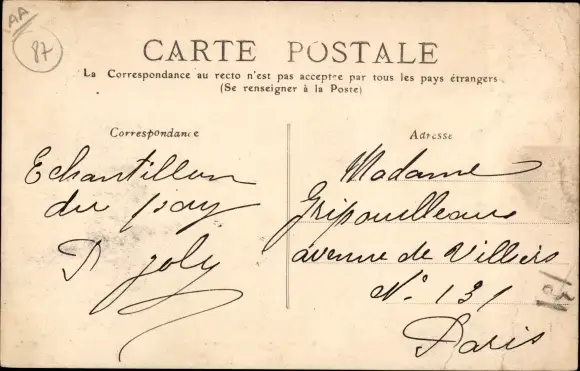 AA
87
CARTE POSTALE
La Correspondance au recto n'est pas acceptée par tous les pays étrangers
(Se renseigner à la Poste)
Correspondance
Echantillon
du pay
P Joly
Adresse
Madame
Gripouilleau
avenue de Villiers
N° 131
Paris
131